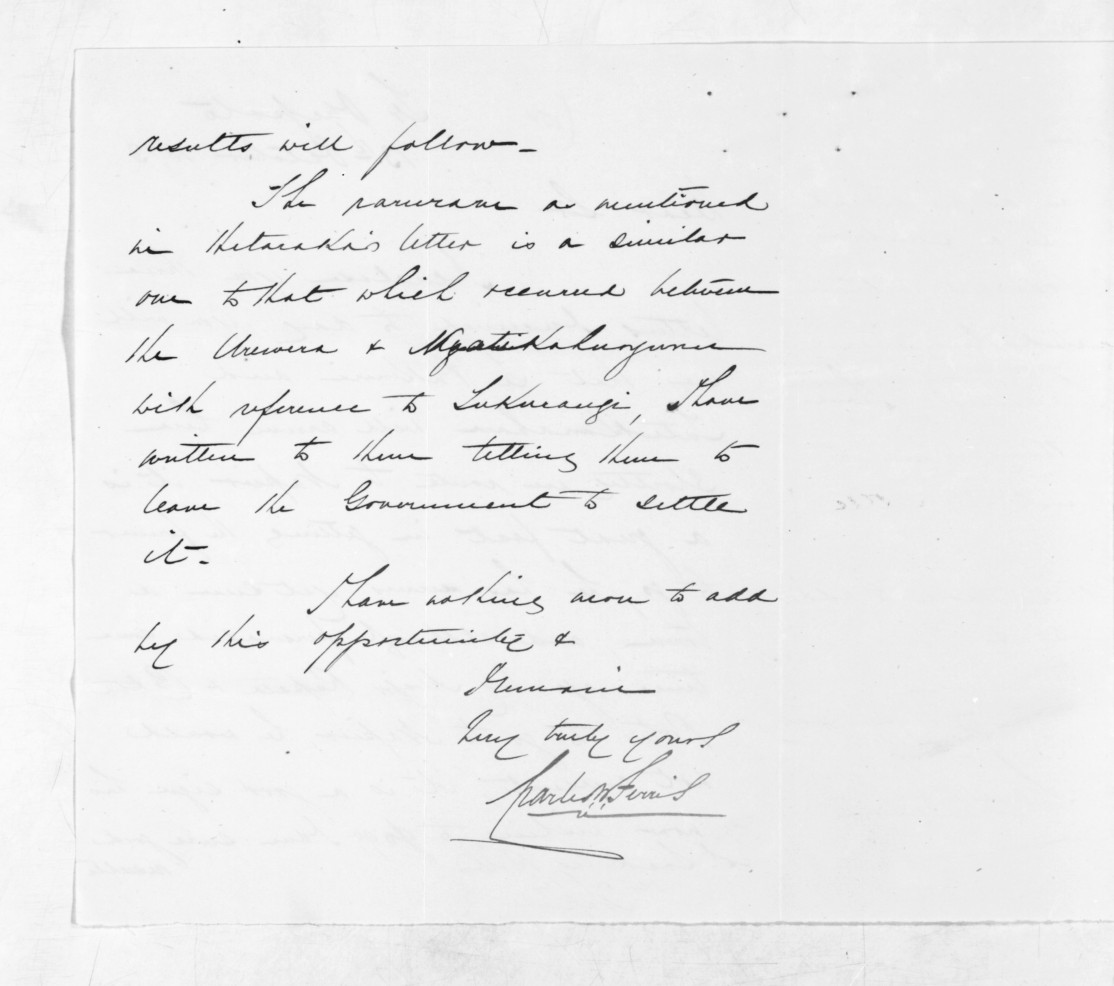 results will follow –
The raruraru as mentioned
in Hetaraka's letter is a similar
one to that which occurred between
the Urewera & Ngatikahungunu
with reference to Tukurangi, I have
written to them telling them to
leave the Government to settle
it –
I have nothing more to add
by this opportunity &
I remain
Very truly yours
Charles W. Ferris